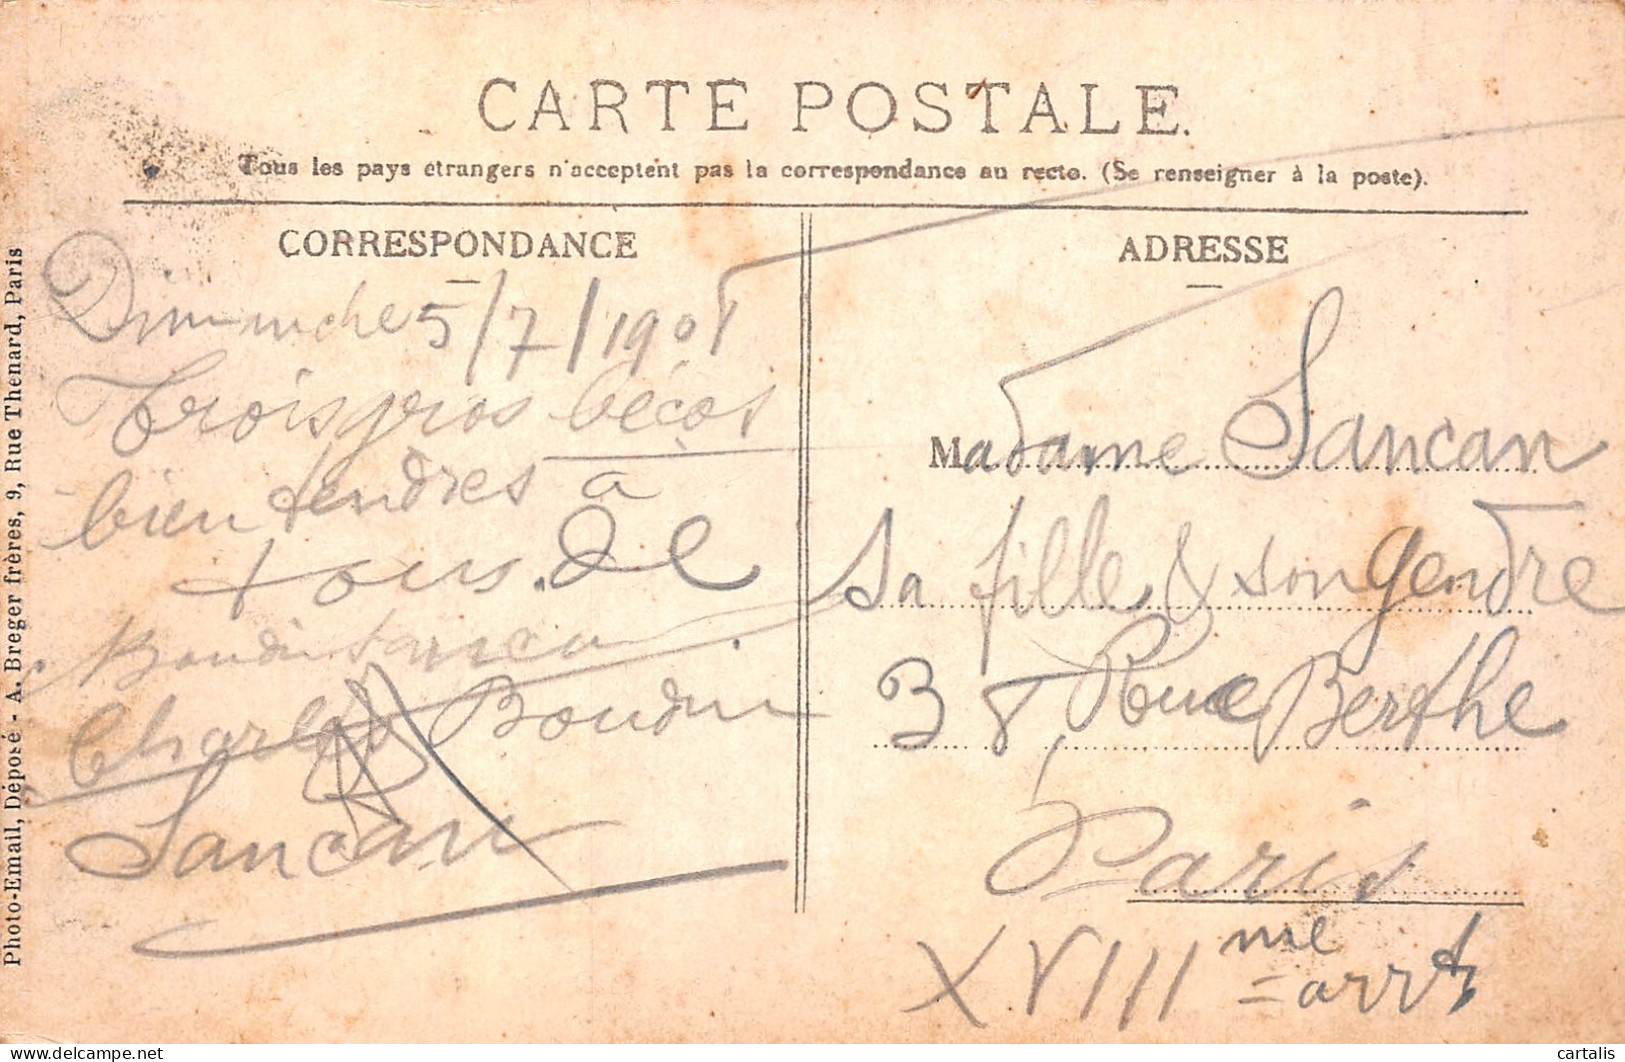 CARTE POSTALE.
Tous les pays étrangers n'acceptent pas la correspondance au recto. (Se renseigner à la poste).
CORRESPONDANCE
Dimanche 5/7/190
Trois gros bécos
bien tendres à
tous. de
Boudin Sancan
Charles Boudin
Sancan
ADRESSE
Madame Sancan
Sa fille & son gendre
38 Rue Berthe
Paris
XVIIIme = arrt
Photo-Email, Déposé - A. Breger frères, 9, Rue Thénard, Paris
cartalis